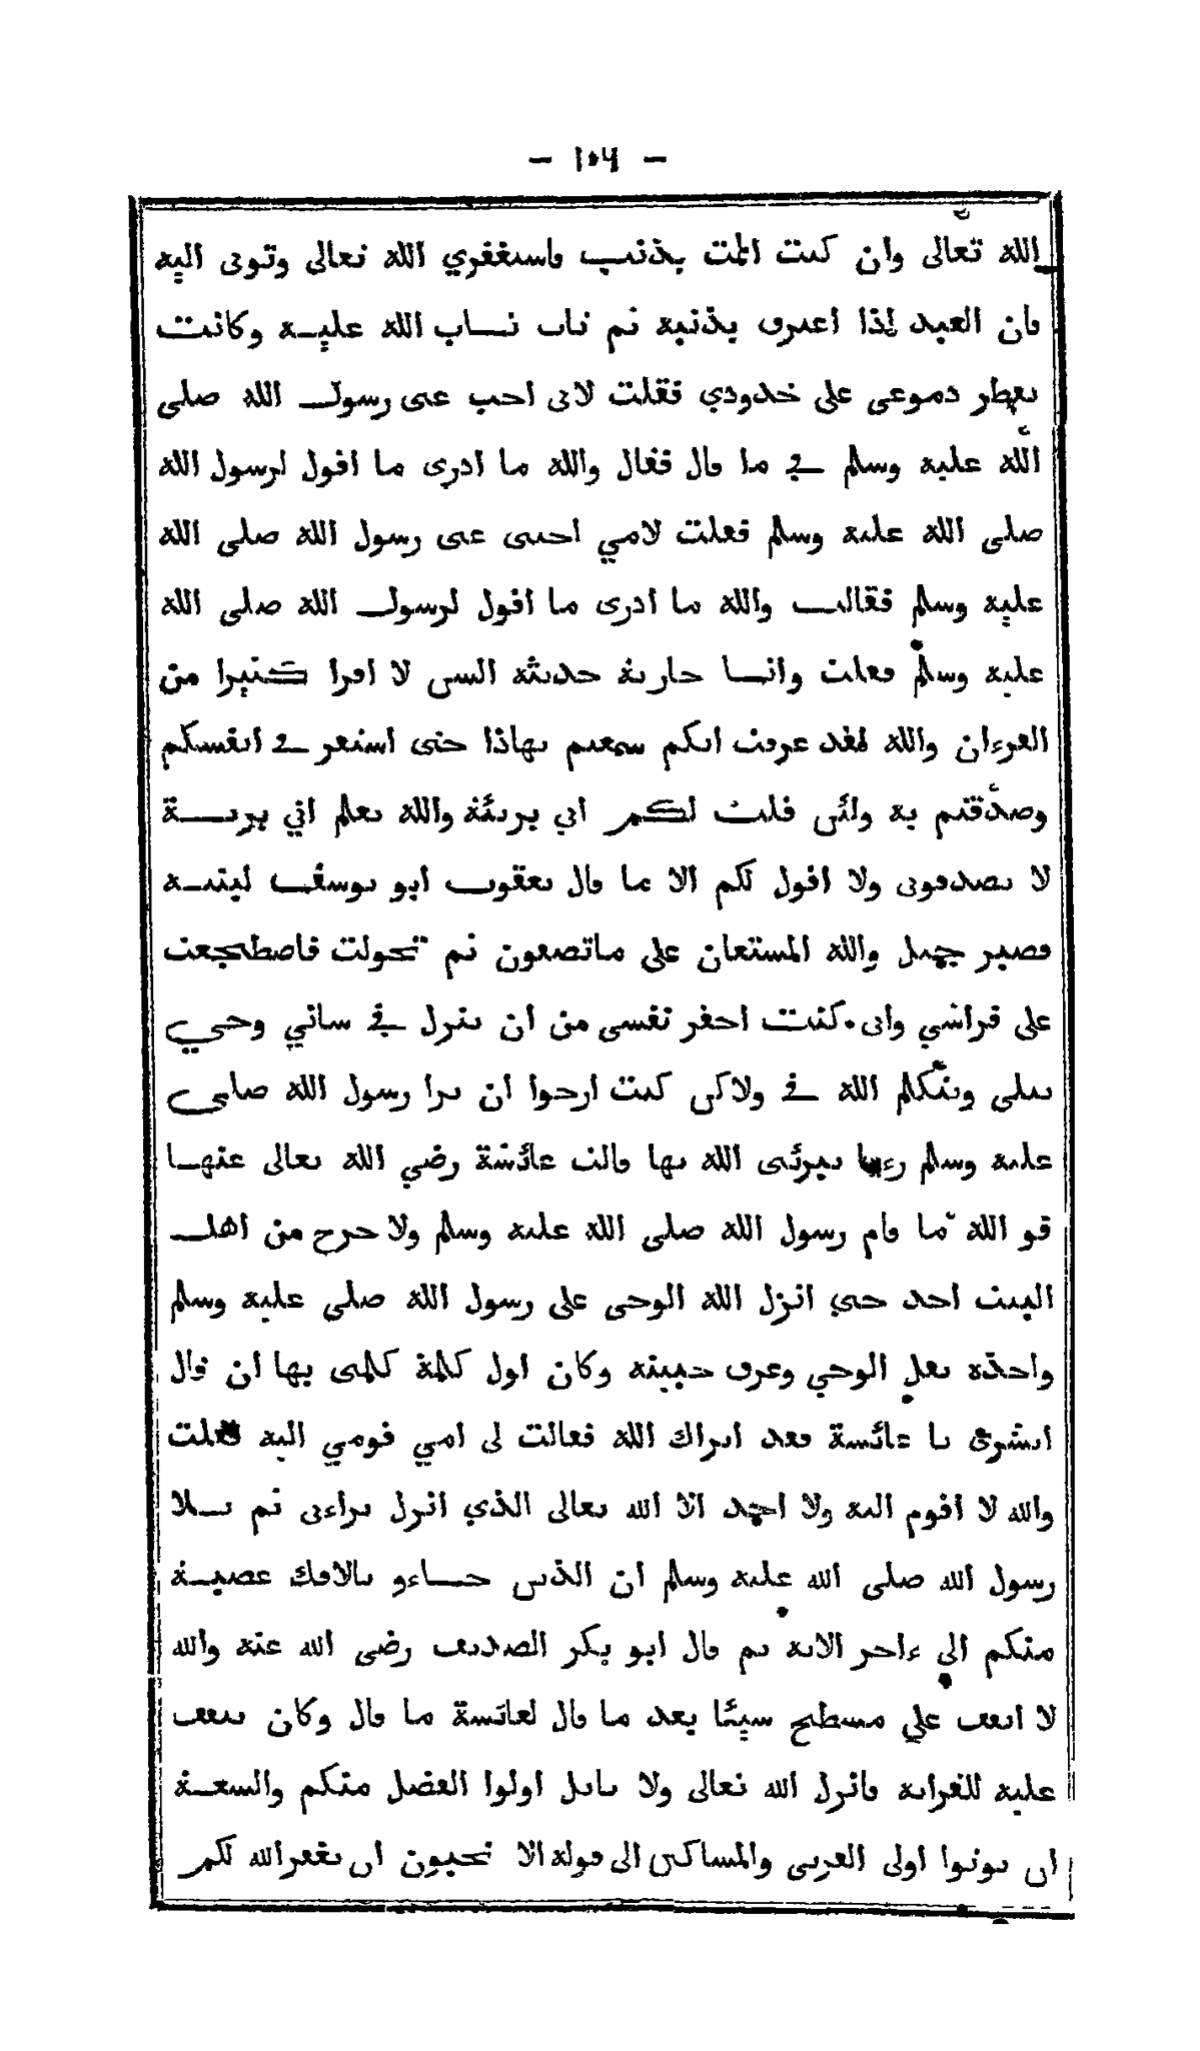 — ١٠٦ —
الله تعالى وان كنت الممت بذنب فاستغفري الله تعالى وتوبى اليه
فان العبد اذا اعترف بذنبه ثم تاب تـاب الله عليـه وكانت
تقطر دموعى على خدودي فقلت لابى احب عنى رسول الله صلى
الله عليه وسلم في ما قال فقال والله ما ادرى ما اقول لرسول الله
صلى الله عليه وسلم فقلت لامي احببى عنى رسول الله صلى الله
عليه وسلم فقالت والله ما ادرى ما اقول لرسول الله صلى الله
عليه وسلم فقلت وانـا جارية حديثة السن لا اقرا كثيرا من
القرءان والله لقد عرفت انكم سمعتم بهاذا حتى استقر في انفسكم
وصدقتم به ولئن قلت لكم اني بريئة والله يعلم اني بريـة
لا تصدقونى ولا اقول لكم الا ما قال يعقوب ابو يوسف لبنيـه
فصبر جميل والله المستعان على ماتصفون ثم تحولت فاضطجعت
على فراشي وانى كنت احقر نفسى من ان ينزل في شاني وحي
يتلى ويتكلم الله في ولاكن كنت ارجوا ان يرا رسول الله صلى
عليه وسلم رءيا يبرئنى الله بها قالت عائشة رضي الله تعالى عنهـا
فو الله ما قام رسول الله صلى الله عليه وسلم ولا خرج من اهل
البيت احد حتى انزل الله الوحى على رسول الله صلى عليه وسلم
واخذه ثقل الوحي وعرق جبينه وكان اول كلمة كلمنى بها ان قال
ابشرى يا عائشة فقد ابراك الله فقالت لى امي قومي اليه فقلت
والله لا اقوم اليه ولا احمد الا الله تعالى الذي انزل براءتى ثم تـلا
رسول الله صلى الله عليه وسلم ان الذين جـاءو بالافك عصبـة
منكم الى ءاخر الاية ثم قال ابو بكر الصديق رضى الله عنه والله
لا انفق على مسطح شيئا بعد ما قال لعائشة ما قال وكان ينفق
عليه للقرابة فانزل الله تعالى ولا ياتل اولوا الفضل منكم والسعـة
ان يوتوا اولى القربى والمساكن الى قوله الا تحبون ان يغفرالله لكم